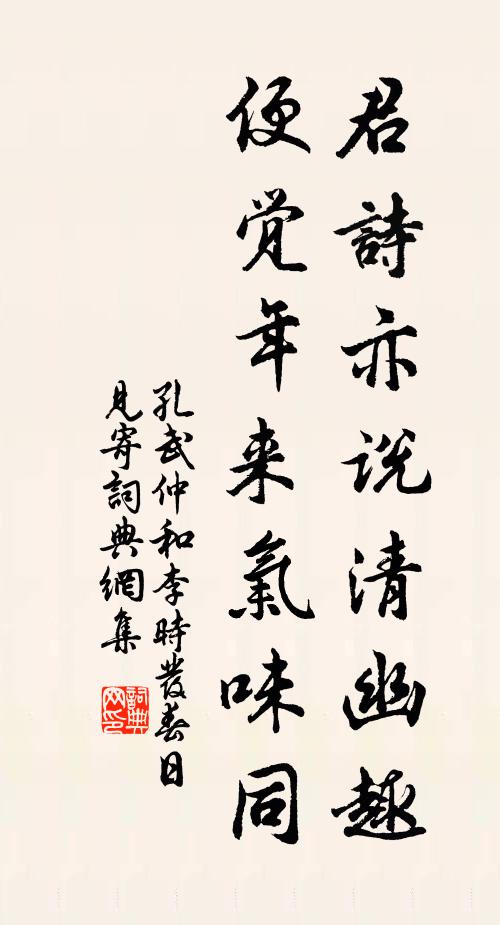 君詩亦说清幽趣
便觉年来氣味同
孔武仲和李時發春日
見寄詞典網集
詞典网印